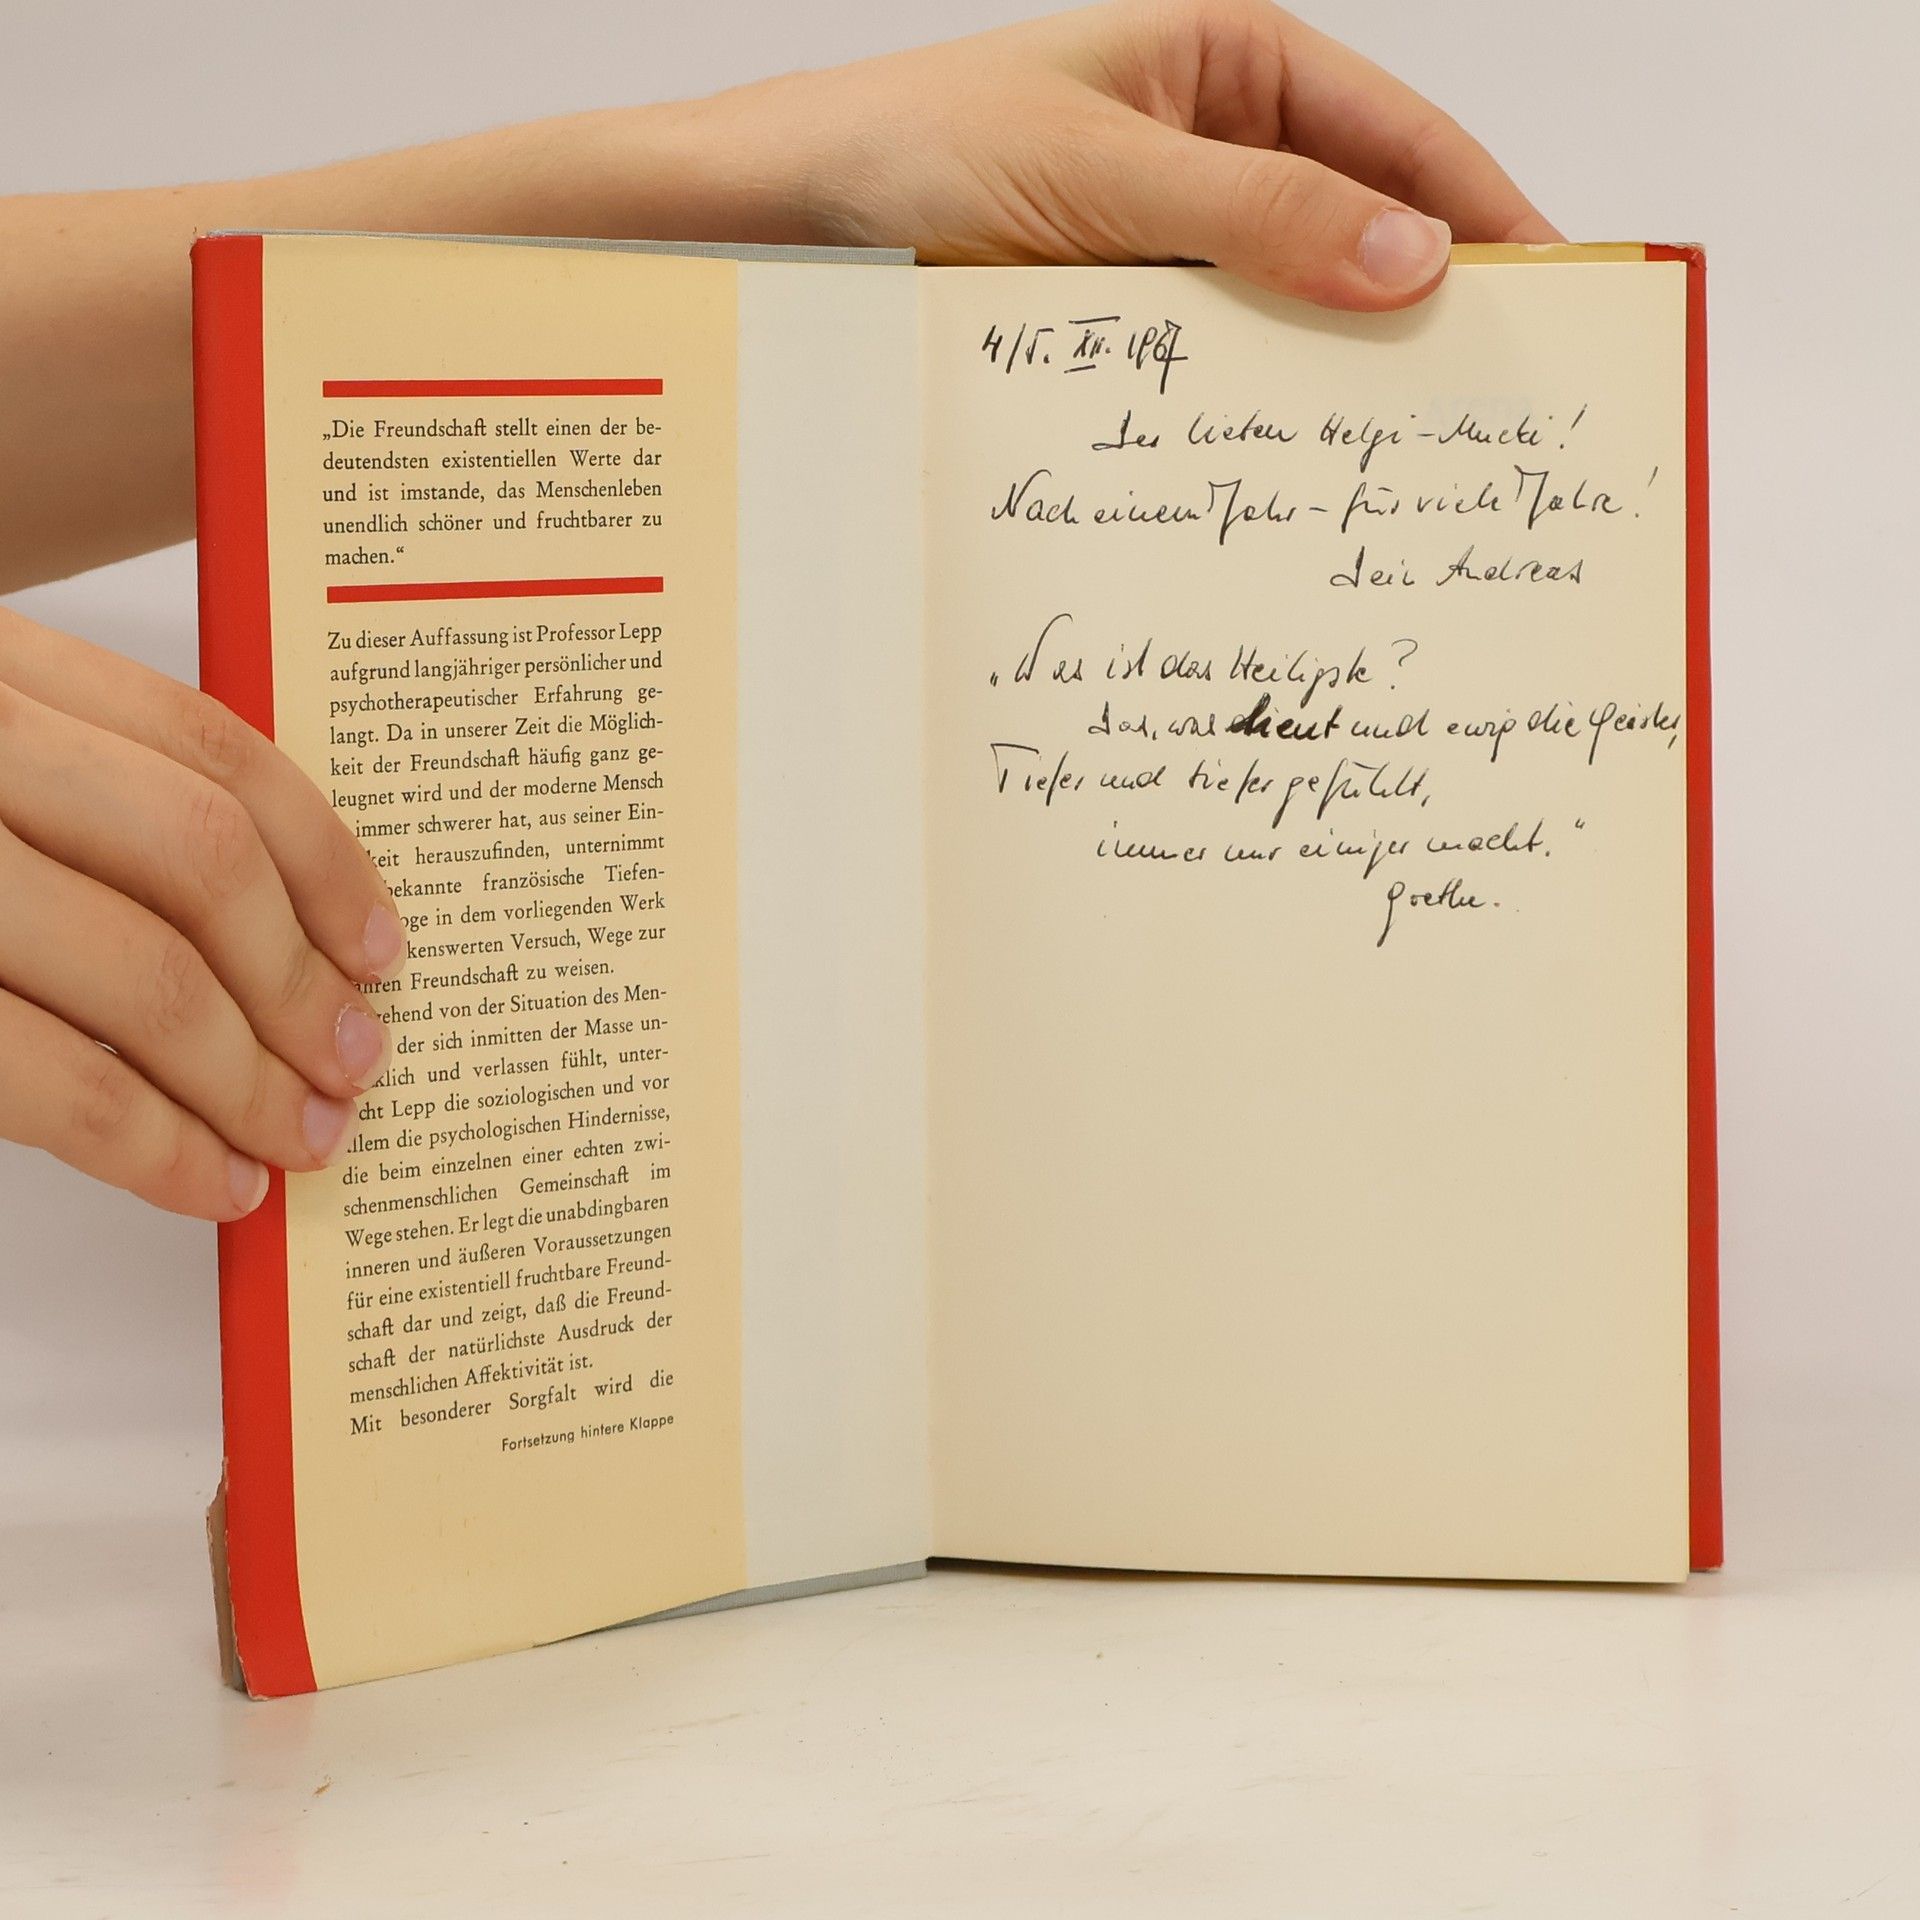 „Die Freundschaft stellt einen der be-
deutendsten existentiellen Werte dar
und ist imstande, das Menschenleben
unendlich schöner und fruchtbarer zu
machen.“
Zu dieser Auffassung ist Professor Lepp
aufgrund langjähriger persönlicher und
psychotherapeutischer Erfahrung ge-
langt. Da in unserer Zeit die Möglich-
keit der Freundschaft häufig ganz ge-
leugnet wird und der moderne Mensch
immer schwerer hat, aus seiner Ein-
keit herauszufinden, unternimmt
bekannte französische Tiefen-
oge in dem vorliegenden Werk
kenswerten Versuch, Wege zur
ahren Freundschaft zu weisen.
gehend von der Situation des Men-
der sich inmitten der Masse un-
klich und verlassen fühlt, unter-
cht Lepp die soziologischen und vor
allem die psychologischen Hindernisse,
die beim einzelnen einer echten zwi-
schenmenschlichen Gemeinschaft im
Wege stehen. Er legt die unabdingbaren
inneren und äußeren Voraussetzungen
für eine existentiell fruchtbare Freund-
schaft dar und zeigt, daß die Freund-
schaft der natürlichste Ausdruck der
menschlichen Affektivität ist.
Mit besonderer Sorgfalt wird die
Fortsetzung hintere Klappe
4/5. XII. 1967
Der lieben Helgi-Mucki!
Nach einem Jahr - für viele Jahre!
Dein Andreas
„Was ist das Heiligste?
Das, was dient und ewig die Geister,
Tiefer und tiefer gefühlt,
immer nur einiger macht.“
Goethe.